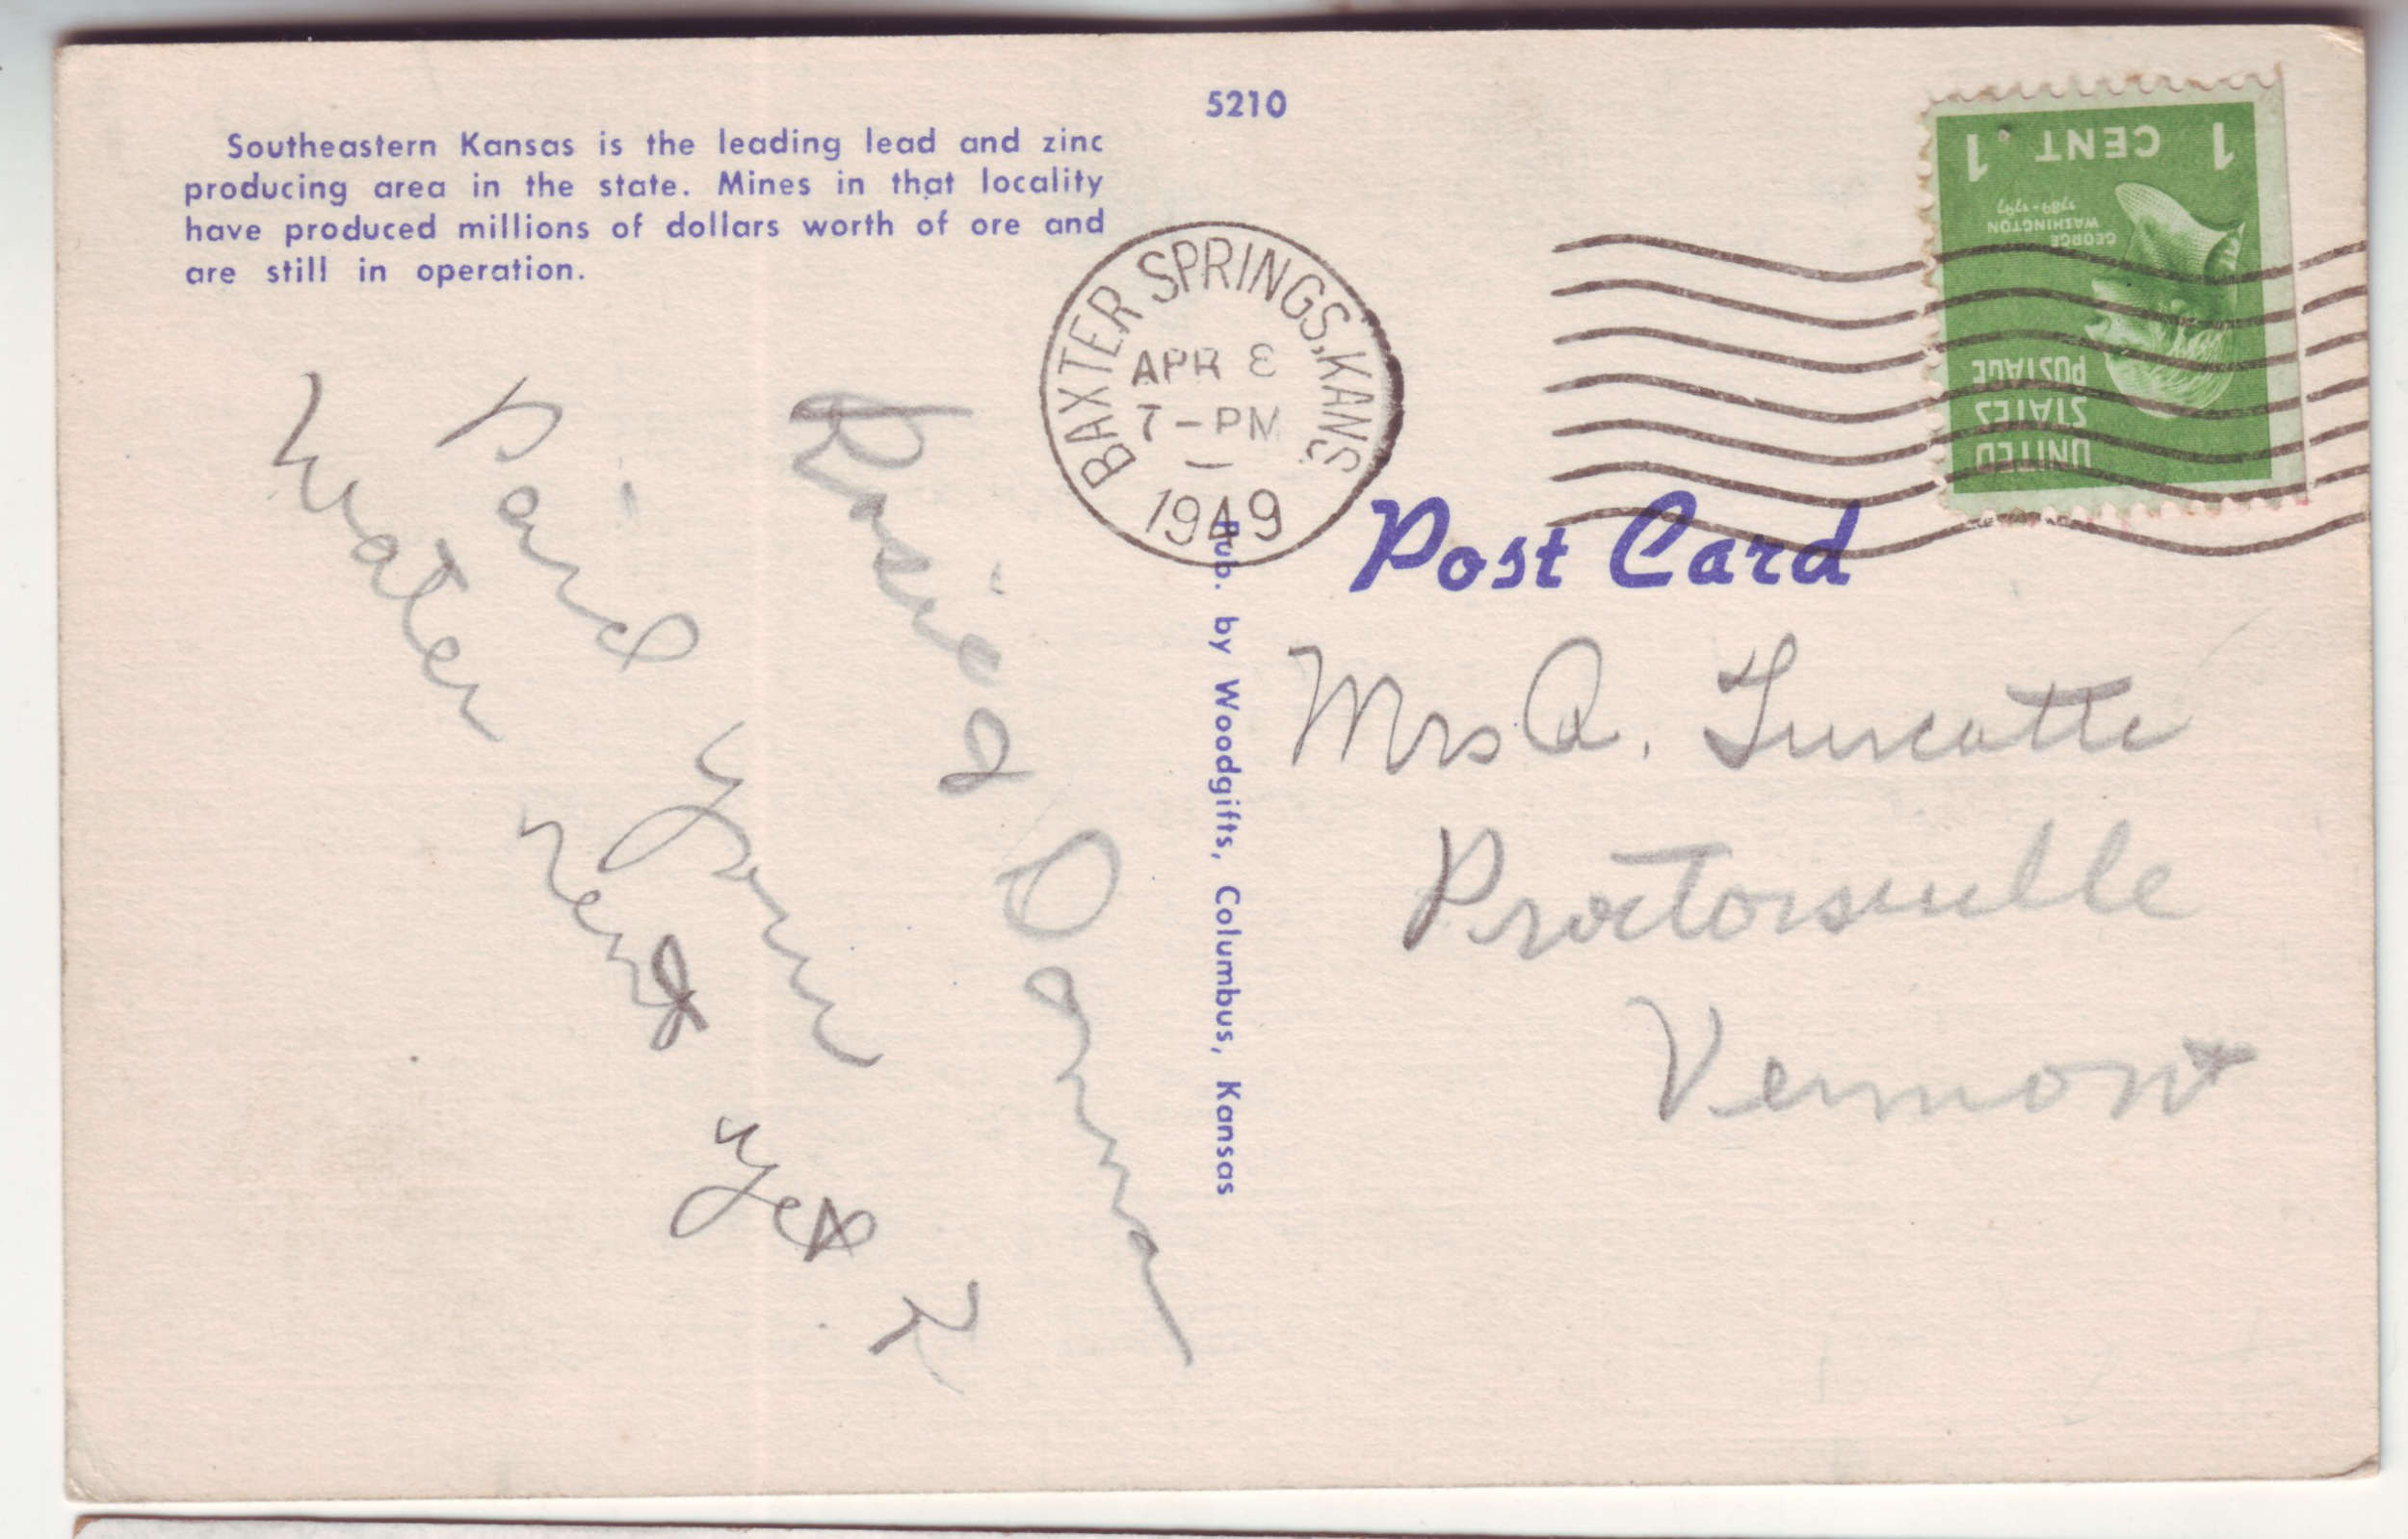 5210
Southeastern Kansas is the leading lead and zinc
producing area in the state. Mines in that locality
have produced millions of dollars worth of ore and
are still in operation.
BAXTER SPRINGS, KANS
APR 8
7-PM
1949
1 CENT 1
GEORGE
WASHINGTON
1789-1797
UNITED
STATES
POSTAGE
Post Card
Pub. by Woodgifts, Columbus, Kansas
Mrs A. Turcotte
Proctorsville
Vermont
Water
Card your